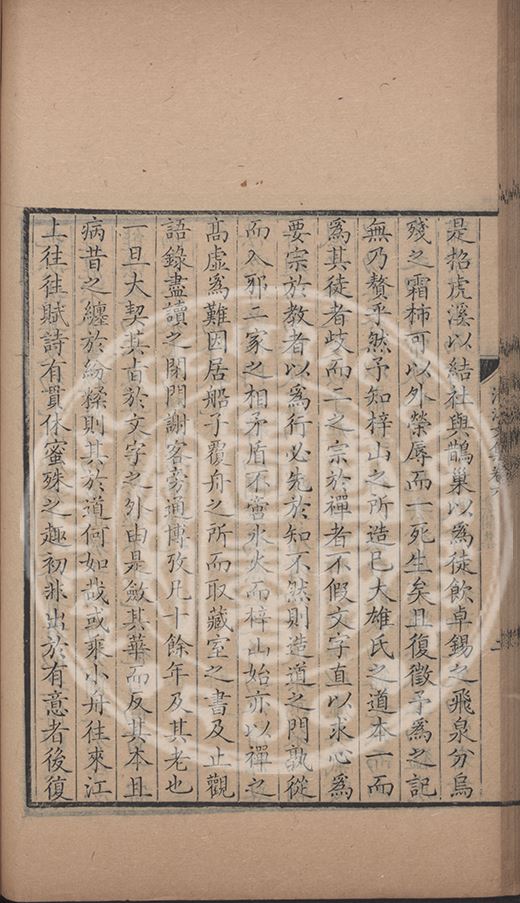 是招虎溪以結社與鵲巢以為徒飲卓錫之飛泉分烏
殘之霜柿可以外榮辱而一死生矣且復徵予為之記
無乃贅乎然予知梓山之所造已大雄氏之道本一而
為其徒者歧而二之宗於禪者不假文字直以求心為
要宗於教者以為行必先於知不然則造道之門孰從
而入邪二家之相矛盾不啻氷火而梓山始亦以禪之
高虛為難因居船子覆舟之所而取藏室之書及止觀
語錄盡讀之閉門謝客旁通博攷凡十餘年及其老也
一旦大契其旨於文字之外由是斂其華而反其本且
病昔之纏於紛糅則其於道何如哉或乘小舟往來江
上往往賦詩有貫休蜜殊之趣初非出於有意者後復